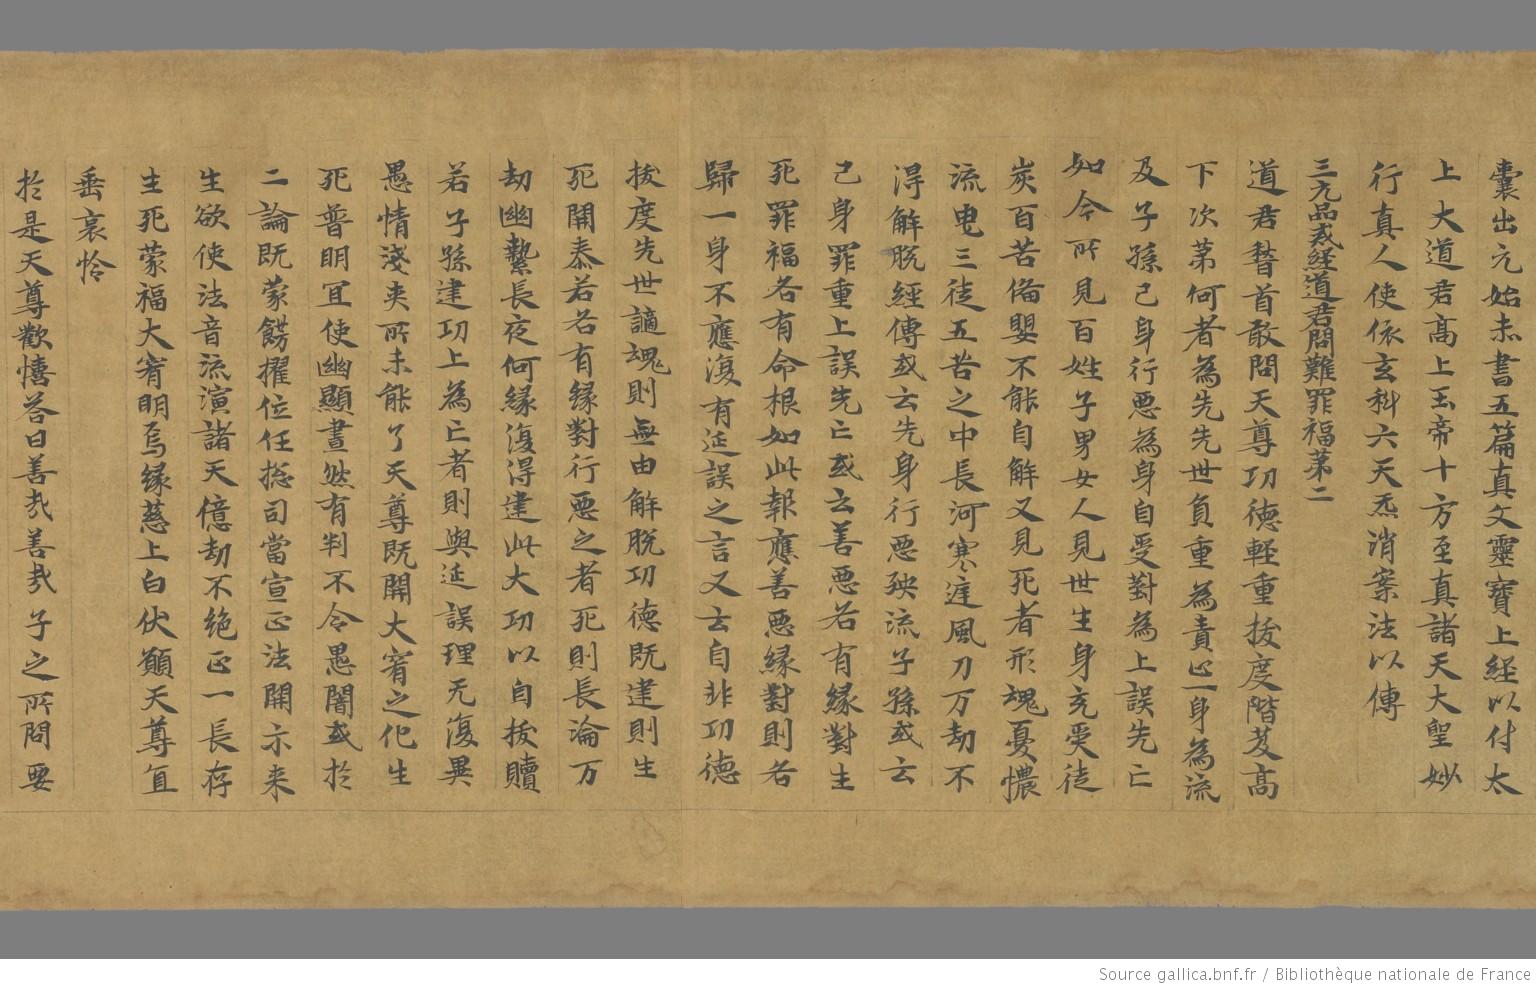 囊出元始赤書五篇真文靈寶上經以付太
上大道君高上玉帝十方至真諸天大聖妙
行真人使依玄科六天炁消案法以傳
三元品戒經道君問難罪福第二
道君稽首敢問天尊功德輕重拔度階芨高
下次第何者為先先世負重為責止一身為流
及子孫己身行惡為身自受對為上誤先亡
如今所見百姓子男女人見世生身充受徒
炭百苦俻嬰不能自解又見死者形魂憂惱
流曳三徒五苦之中長河寒庭風刀万劫不
得解脱經傳或云先身行惡殃流子孫或云
己身罪重上誤先亡或云善惡若有緣對生
死罪福各有命根如此報應善惡緣對則各
歸一身不應復有延誤之言又云自非功德
拔度先世謫魂則無由解脱功徳既建則生
死開泰若若有緣對行惡之者死則長淪万
劫幽縶長夜何緣復得建此大功以自拔贖
若子孫建功上為亡者則與延誤理无復異
愚情淺夾所未能了天尊既開大宥之化生
死普明冝使幽顯晝然有判不令愚闇或於
二論既蒙餝擢位任捴司當宣正法開示来
生欲使法音流演諸天億劫不絶正一長存
生死蒙福大宥明焉緣慈上白伏願天尊冝
垂哀怜
於是天尊歡憘答曰善哉善哉子之所問要
Source gallica.bnf.fr / Bibliothèque nationale de France